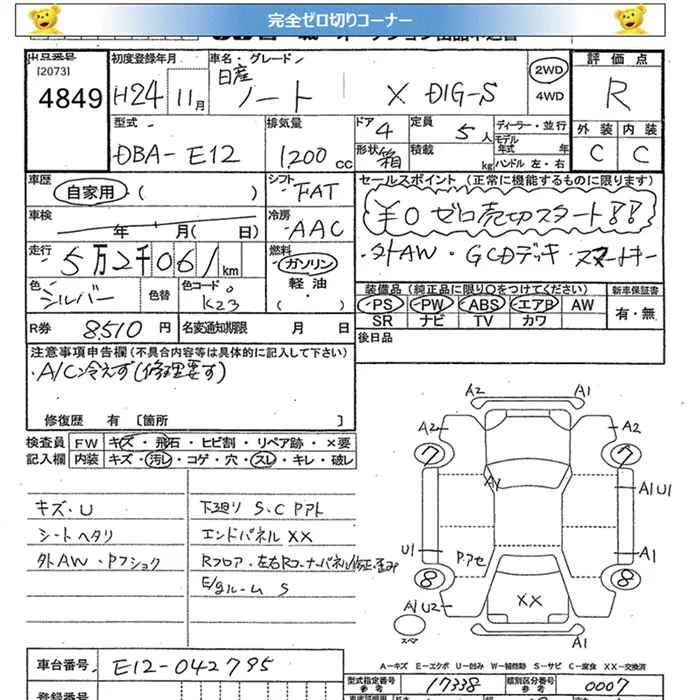 完全ゼロ切りコーナー
出品番号 初度登録年月 車名・グレード 評価点
[2073]
4849 H24 11月 日産 ノート X DIG-S 2WD 4WD R
型式 排気量 ドア 4 定員 5人 ディーラー・並行 外装 内装
DBA-E12 1200cc 形状 箱 積載 kg モデル年式 年 ハンドル 左・右 C C
車歴 自家用 ( ) シフト FAT セールスポイント (正常に機能するものに限ります)
車検 年 月( 日) 冷房 AAC ¥0 ゼロ売切スタート!!
走行 5万2千061km 燃料 ガソリン 軽油・ ( ) ・外AW・GCDデッキ・スマートキー
色 シルバー 色替 色コード K23 装備品 (純正品に限り○をつけてください) 新車保証書
PS・PW・ABS・エアB・AW 有・無
SR ナビ TV カワ
R券 8510円 名変通知期限 月 日 後日品
注意事項申告欄 (不具合内容等は具体的に記入して下さい)
・A/C冷えず(修理要す)
修復歴 有 〔箇所 〕
検査員 FW キズ・飛石・ヒビ割・リペア跡・×要
記入欄 内装 キズ・汚レ・コゲ・穴・スレ・キレ・破レ
キズ・U 下廻り S.C Pアト
シートヘタリ エンドパネル XX
外AW・Pフショク Rフロア・左右Rコーナーパネル修正・歪み
E/gルーム S
A2 A1
A2 A2
7 7
A1 A1U1
U1 P.アセ A1
8 8
A1U2 XX A1
スペア
A-キズ E-エクボ U-凹み W-補修跡 S-サビ C-腐食 XX-交換済
車台番号 E12-042795 型式指定番号 参考 17338 類別区分番号 参考 0007
登録番号